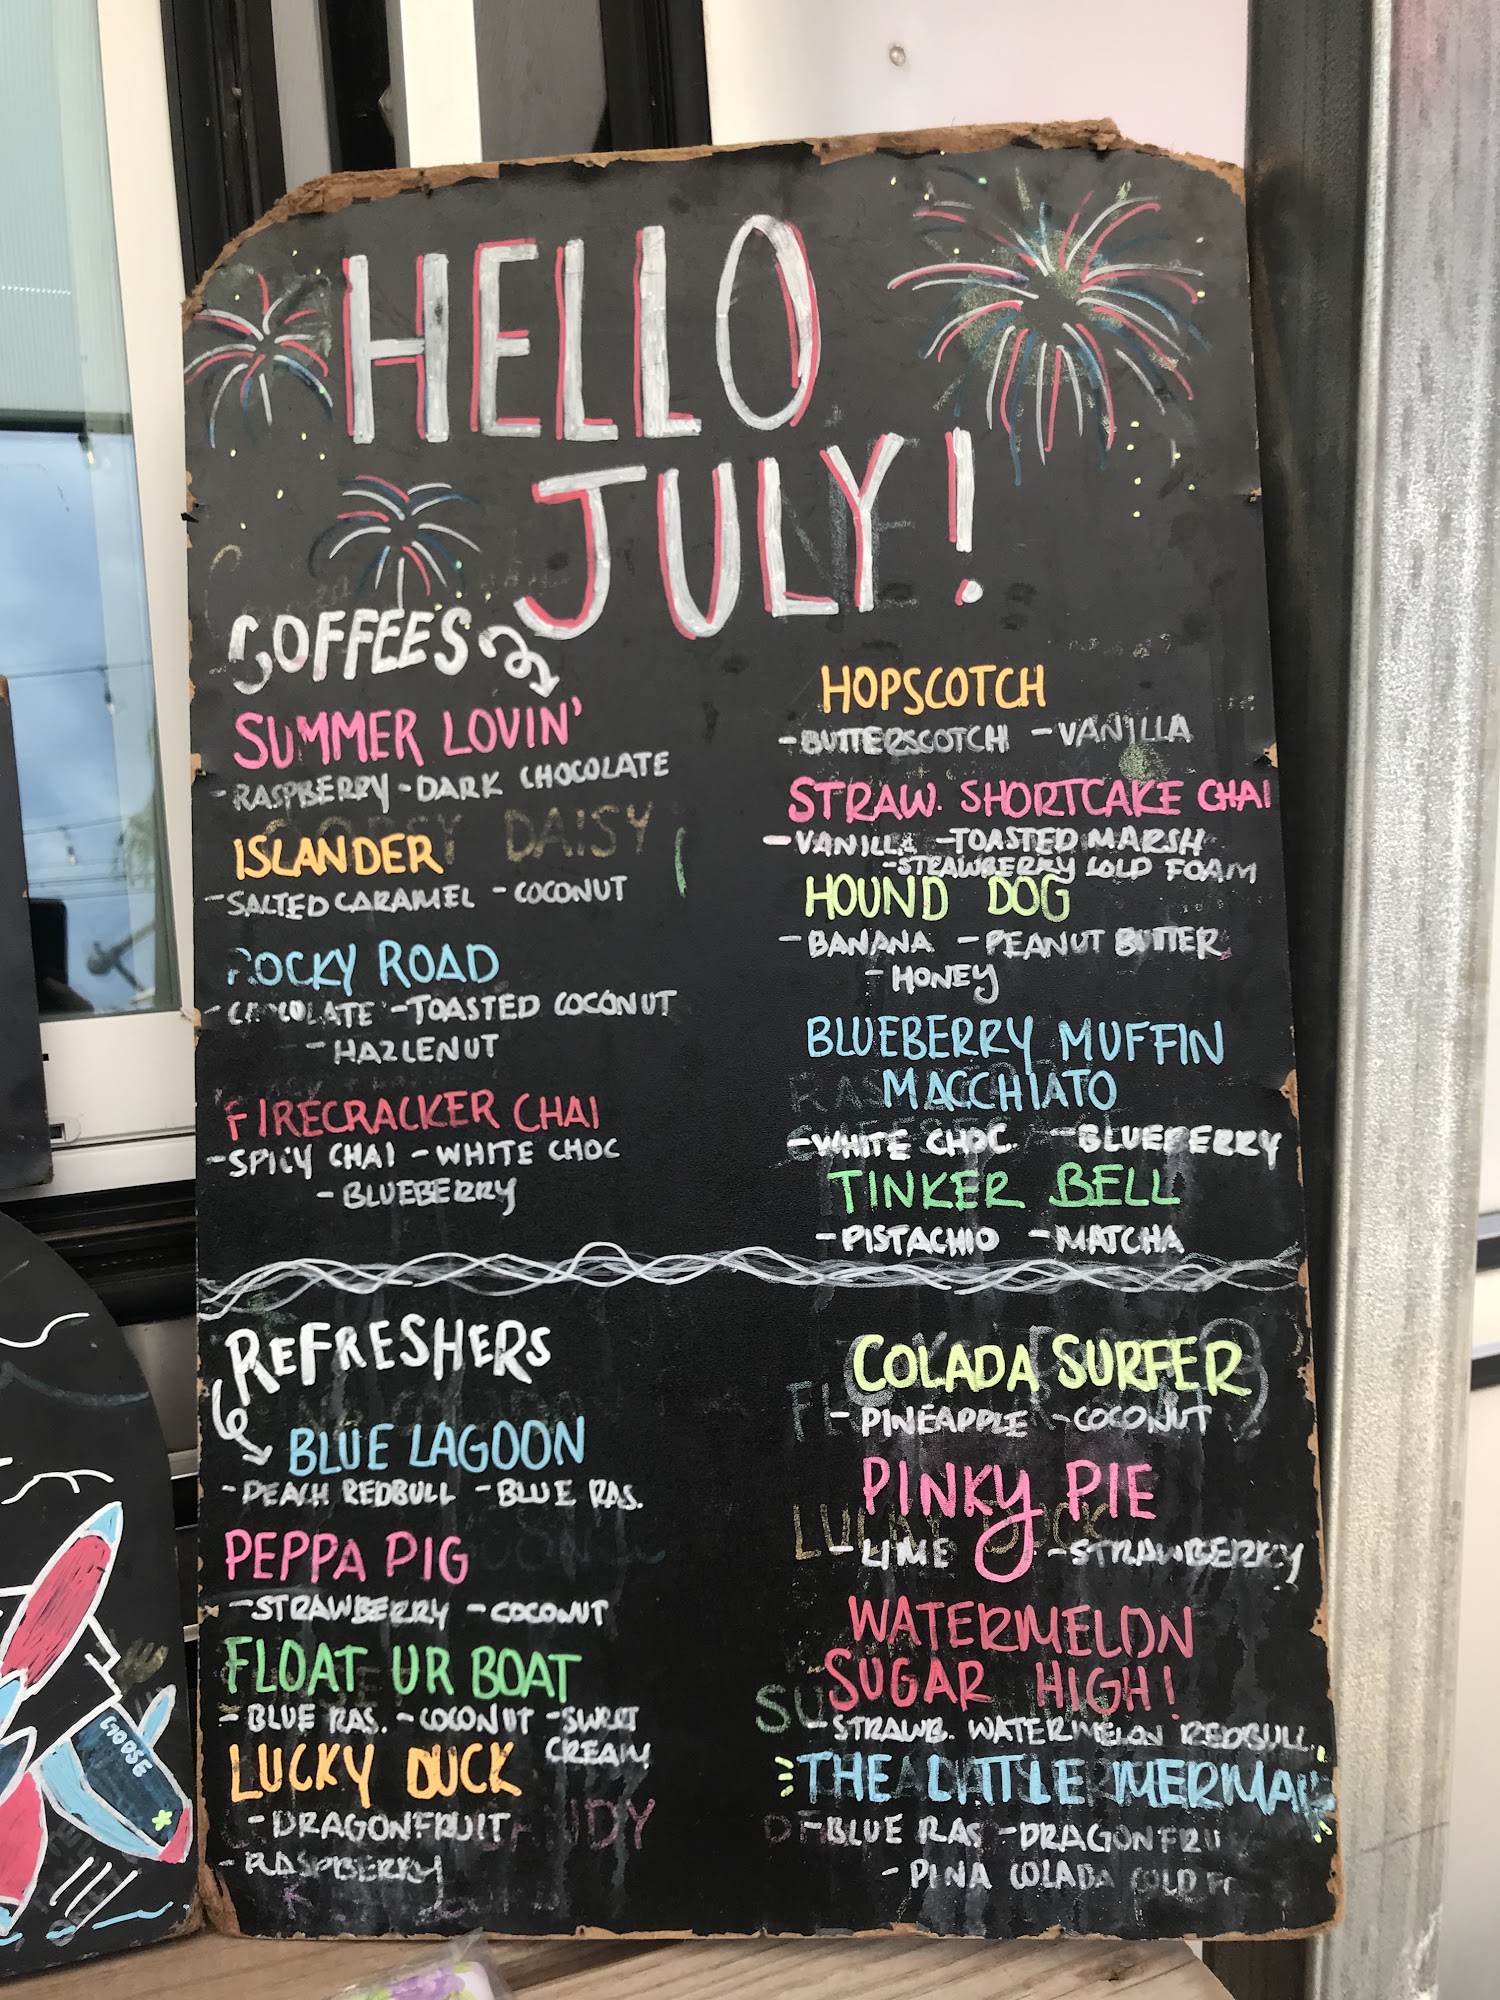 HELLO
JULY!
COFFEES
SUMMER LOVIN'
- RASPBERRY - DARK CHOCOLATE
ISLANDER
- SALTED CARAMEL - COCONUT
ROCKY ROAD
- CHOCOLATE - TOASTED COCONUT
- HAZLENUT
FIRECRACKER CHAI
- SPICY CHAI - WHITE CHOC
- BLUEBERRY
HOPSCOTCH
- BUTTERSCOTCH - VANILLA
STRAW. SHORTCAKE CHAI
- VANILLA - TOASTED MARSH
- STRAWBERRY COLD FOAM
HOUND DOG
- BANANA - PEANUT BUTTER
- HONEY
BLUEBERRY MUFFIN
MACCHIATO
- WHITE CHOC. - BLUEBERRY
TINKER BELL
- PISTACHIO - MATCHA
REFRESHERS
BLUE LAGOON
- PEACH REDBULL - BLUE RAS.
PEPPA PIG
- STRAWBERRY - COCONUT
FLOAT UR BOAT
- BLUE RAS. - COCONUT - SWEET
CREAM
LUCKY DUCK
- DRAGONFRUIT
- RASPBERRY
COLADA SURFER
- PINEAPPLE - COCONUT
PINKY PIE
- LIME - STRAWBERRY
WATERMELON
SUGAR HIGH!
- STRAWB. WATERMELON REDBULL
THE LITTLE MERMAID
- BLUE RAS - DRAGONFRUI
- PINA COLADA COLD F
GOOSE